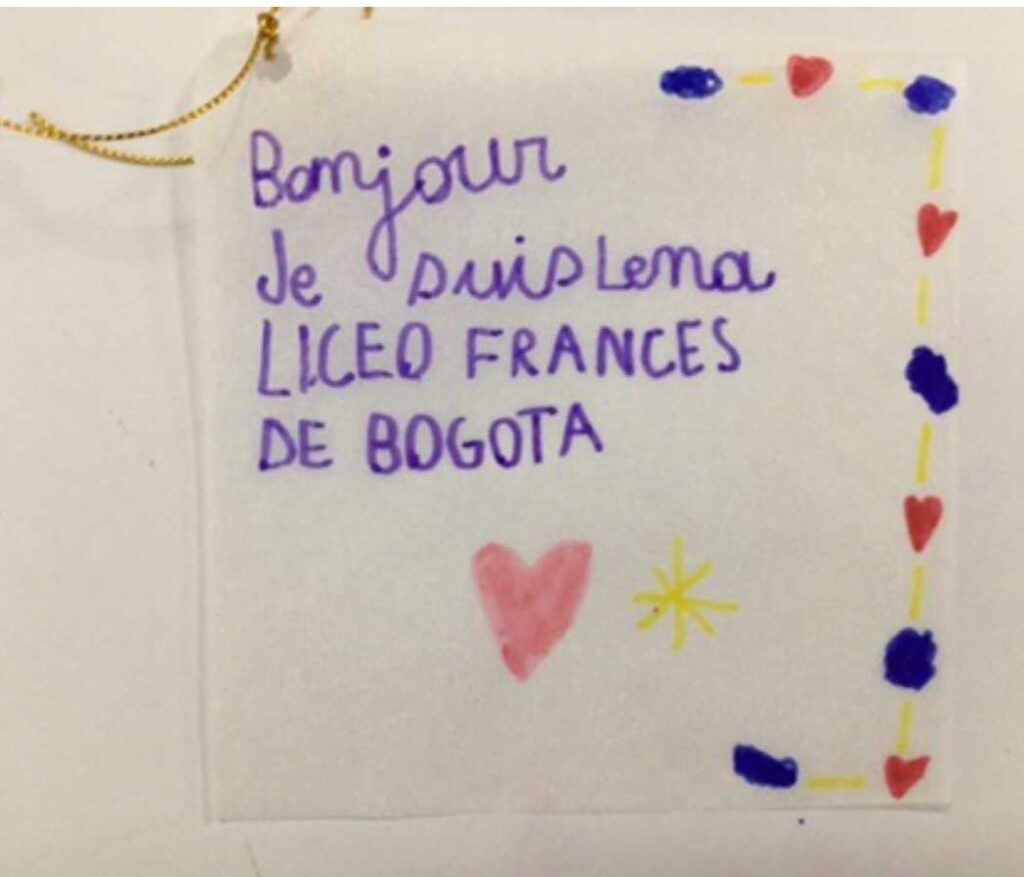 Bonjour
Je suis Lena
LICEO FRANCES
DE BOGOTA